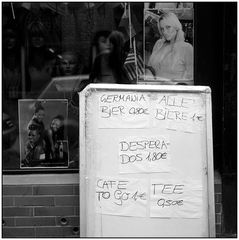 GERMANIA
BIER 0.80€
ALLE
BIERE 1€
DESPERA-
DOS 1.80€
CAFE
TO GO 1€
TEE
0,50€